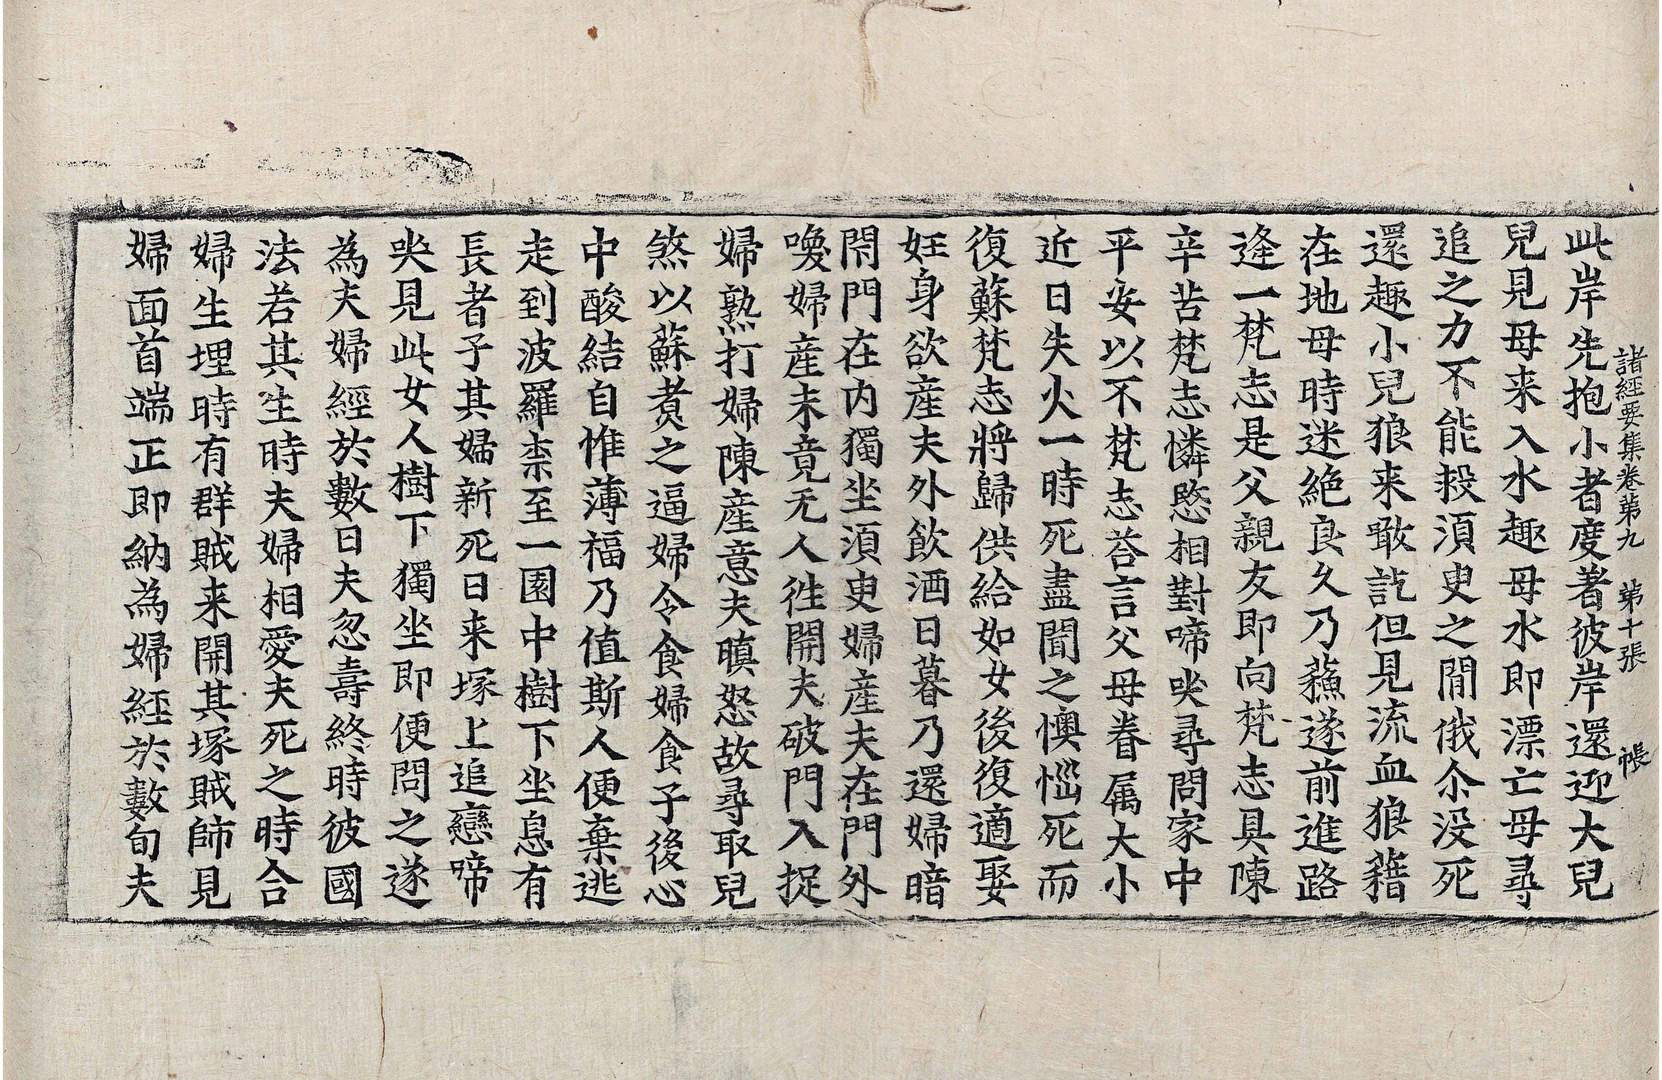 諸經要集卷第九 第十張 帳
此岸先抱小者度著彼岸還迎大兒
兒見母来入水趣母母水即漂亡母尋
追之力不能投湏臾之間俄尒没死
還趣小兒狼来敢訖但見流血狼藉
在地母時迷絶良久乃蘓遂前進路
逢一梵志是父親友即向梵志具陳
辛苦梵志憐愍相對啼哭尋問家中
平安以不梵志荅言父母眷属大小
近日失火一時死盡聞之懊惱死而
復蘇梵志將歸供給如女後復適娶
妊身欲産夫外飲酒日暮乃還婦暗
閇門在内獨坐湏臾婦産夫在門外
喚婦産未竟无人徃開夫破門入捉
婦熟打婦陳産意夫瞋怒故尋取兒
煞以蘇煑之逼婦令食婦食子後心
中酸結自惟薄福乃值斯人便棄逃
走到波羅柰至一園中樹下坐息有
長者子其婦新死日来塚上追戀啼
哭見此女人樹下獨坐即便問之遂
為夫婦經於數日夫忽壽終時彼國
法若其生時夫婦相愛夫死之時合
婦生埋時有群賊来開其塚賊師見
婦面首端正即納為婦經於數旬夫